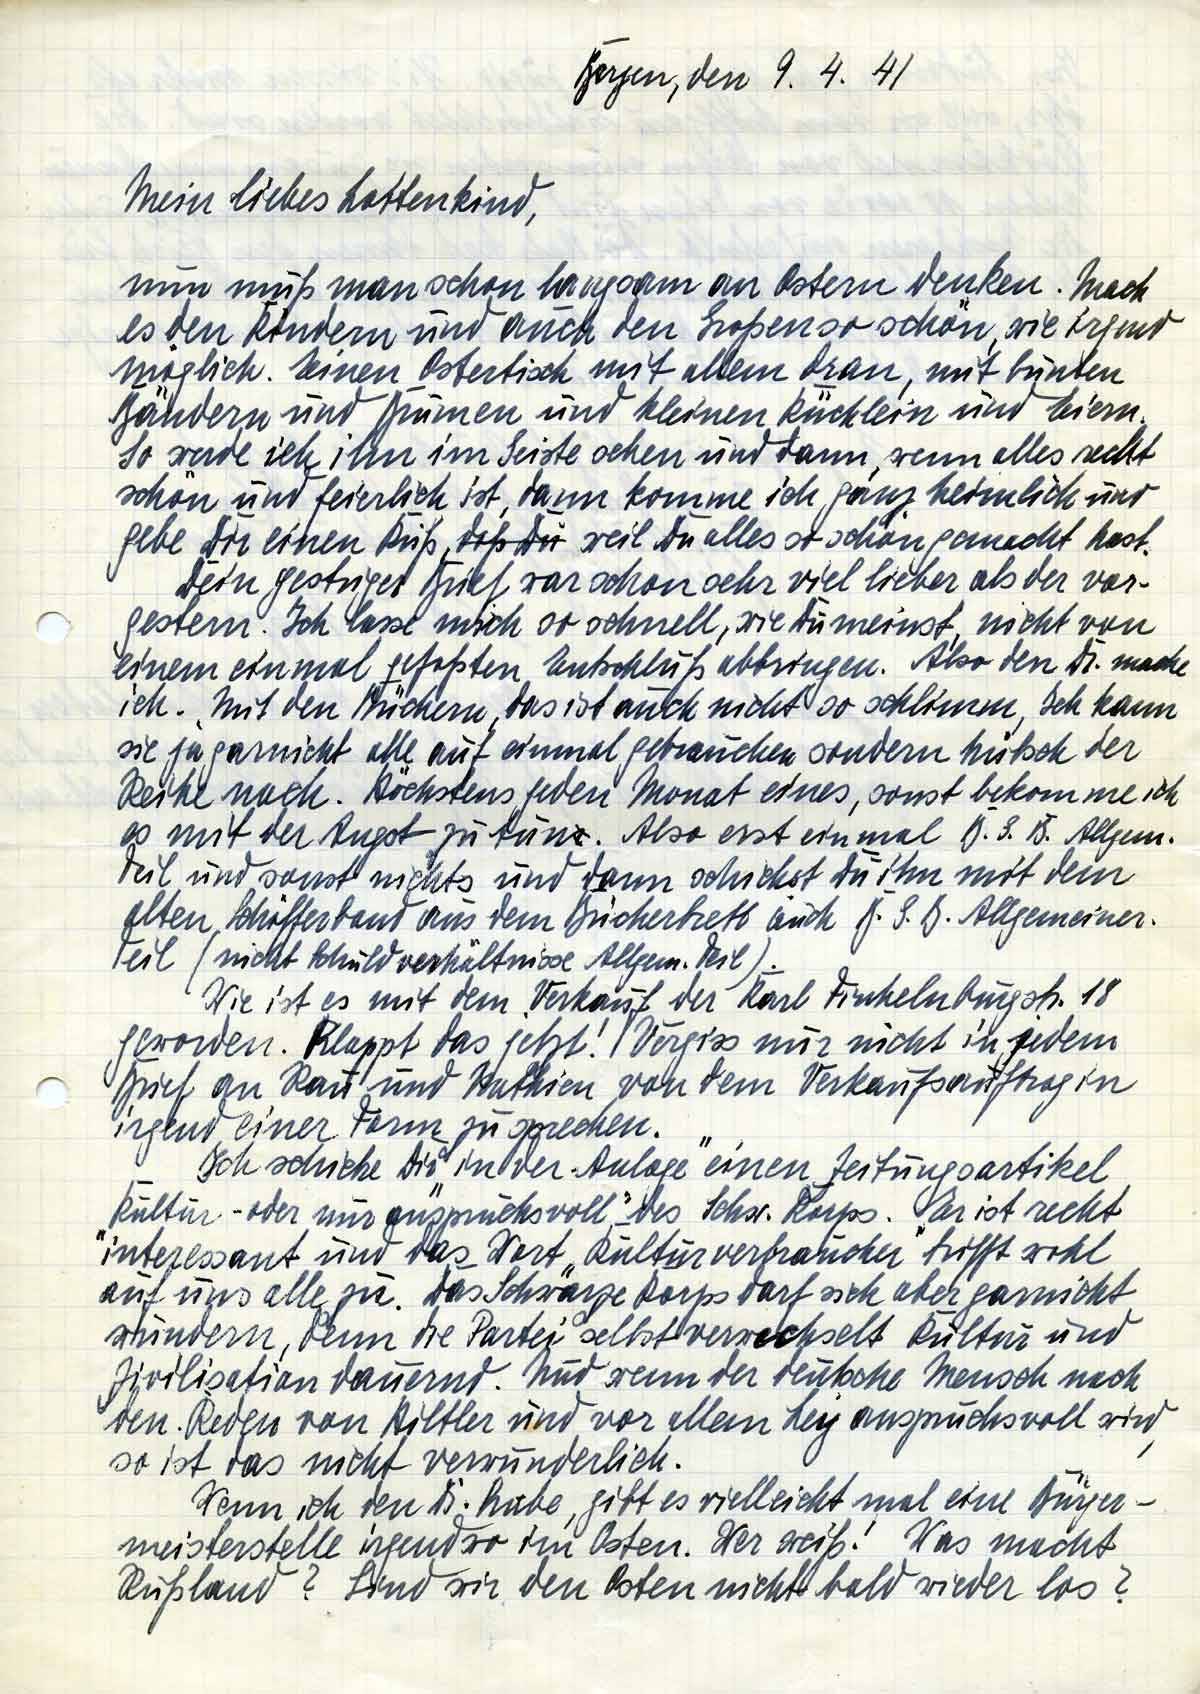 Bergen, den 9. 4. 41
Mein liebes Lottenkind,
nun muß man schon langsam an Ostern denken. Mach
es den Kindern und auch den Großen so schön, wie irgend
möglich. Einen Ostertisch mit allem dran, mit bunten
Bändern und Blumen und kleinen Kücklein und Eiern.
So werde ich ihn im Geiste sehen und dann, wenn alles recht
schön und feierlich ist, dann komme ich ganz heimlich und
gebe Dir einen Kuß, daß Du weil Du alles so schön gemacht hast.
Dein gestriger Brief war schon sehr viel lieber als der vor-
gestern. Ich lasse mich so schnell, wie Du meinst, nicht von
einem einmal gefaßten Entschluß abbringen. Also den Dr. mache
ich. Mit den Büchern, das ist auch nicht so schlimm, Ich kann
sie ja garnicht alle auf einmal gebrauchen sondern hübsch der
Reihe nach. Höchstens jeden Monat eines, sonst bekomme ich
es mit der Angst zu tun. Also erst einmal B. G. B. Allgem.
Teil und sonst nichts und dann schickst Du ihn mit dem
alten Schäfferband aus dem Bücherbrett auch B. G. B. Allgemeiner.
Teil (nicht Schuldverhältnisse Allgem. Teil).
Wie ist es mit dem Verkauf der Karl Finkelnburgstr. 18
geworden. Klappt das jetzt! Vergiss nur nicht in jedem
Brief an Rau und Mathien von dem Verkaufsauftrag in
irgend einer Form zu sprechen.
Ich schicke Dir "in der Anlage" einen Zeitungsartikel
"Kultur - oder nur anspruchsvoll" des Schw. Korps. Er ist recht
interessant und das Wort "Kulturverbraucher" trifft wohl
auf uns alle zu. Das Schwarze Korps darf sich aber garnicht
wundern, denn die Partei selbst verwechselt Kultur und
Zivilisation dauernd. Und wenn der deutsche Mensch nach
den Reden von Hiltler und vor allem Ley anspruchsvoll wird,
so ist das nicht verwunderlich.
Wenn ich den Dr. habe, gibt es vielleicht mal eine Bürger-
meisterstelle irgendwo im Osten. Wer weiß! Was macht
Rußland? Sind wir den Osten nicht bald wieder los?